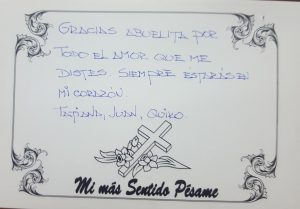 GRACIAS ABUELITA POR
TODO EL AMOR QUE ME
DISTES SIEMPRE ESTARÁS EN
MI CORAZÓN
TATIANA, JUAN, QUIKO.
Mi más Sentido Pésame